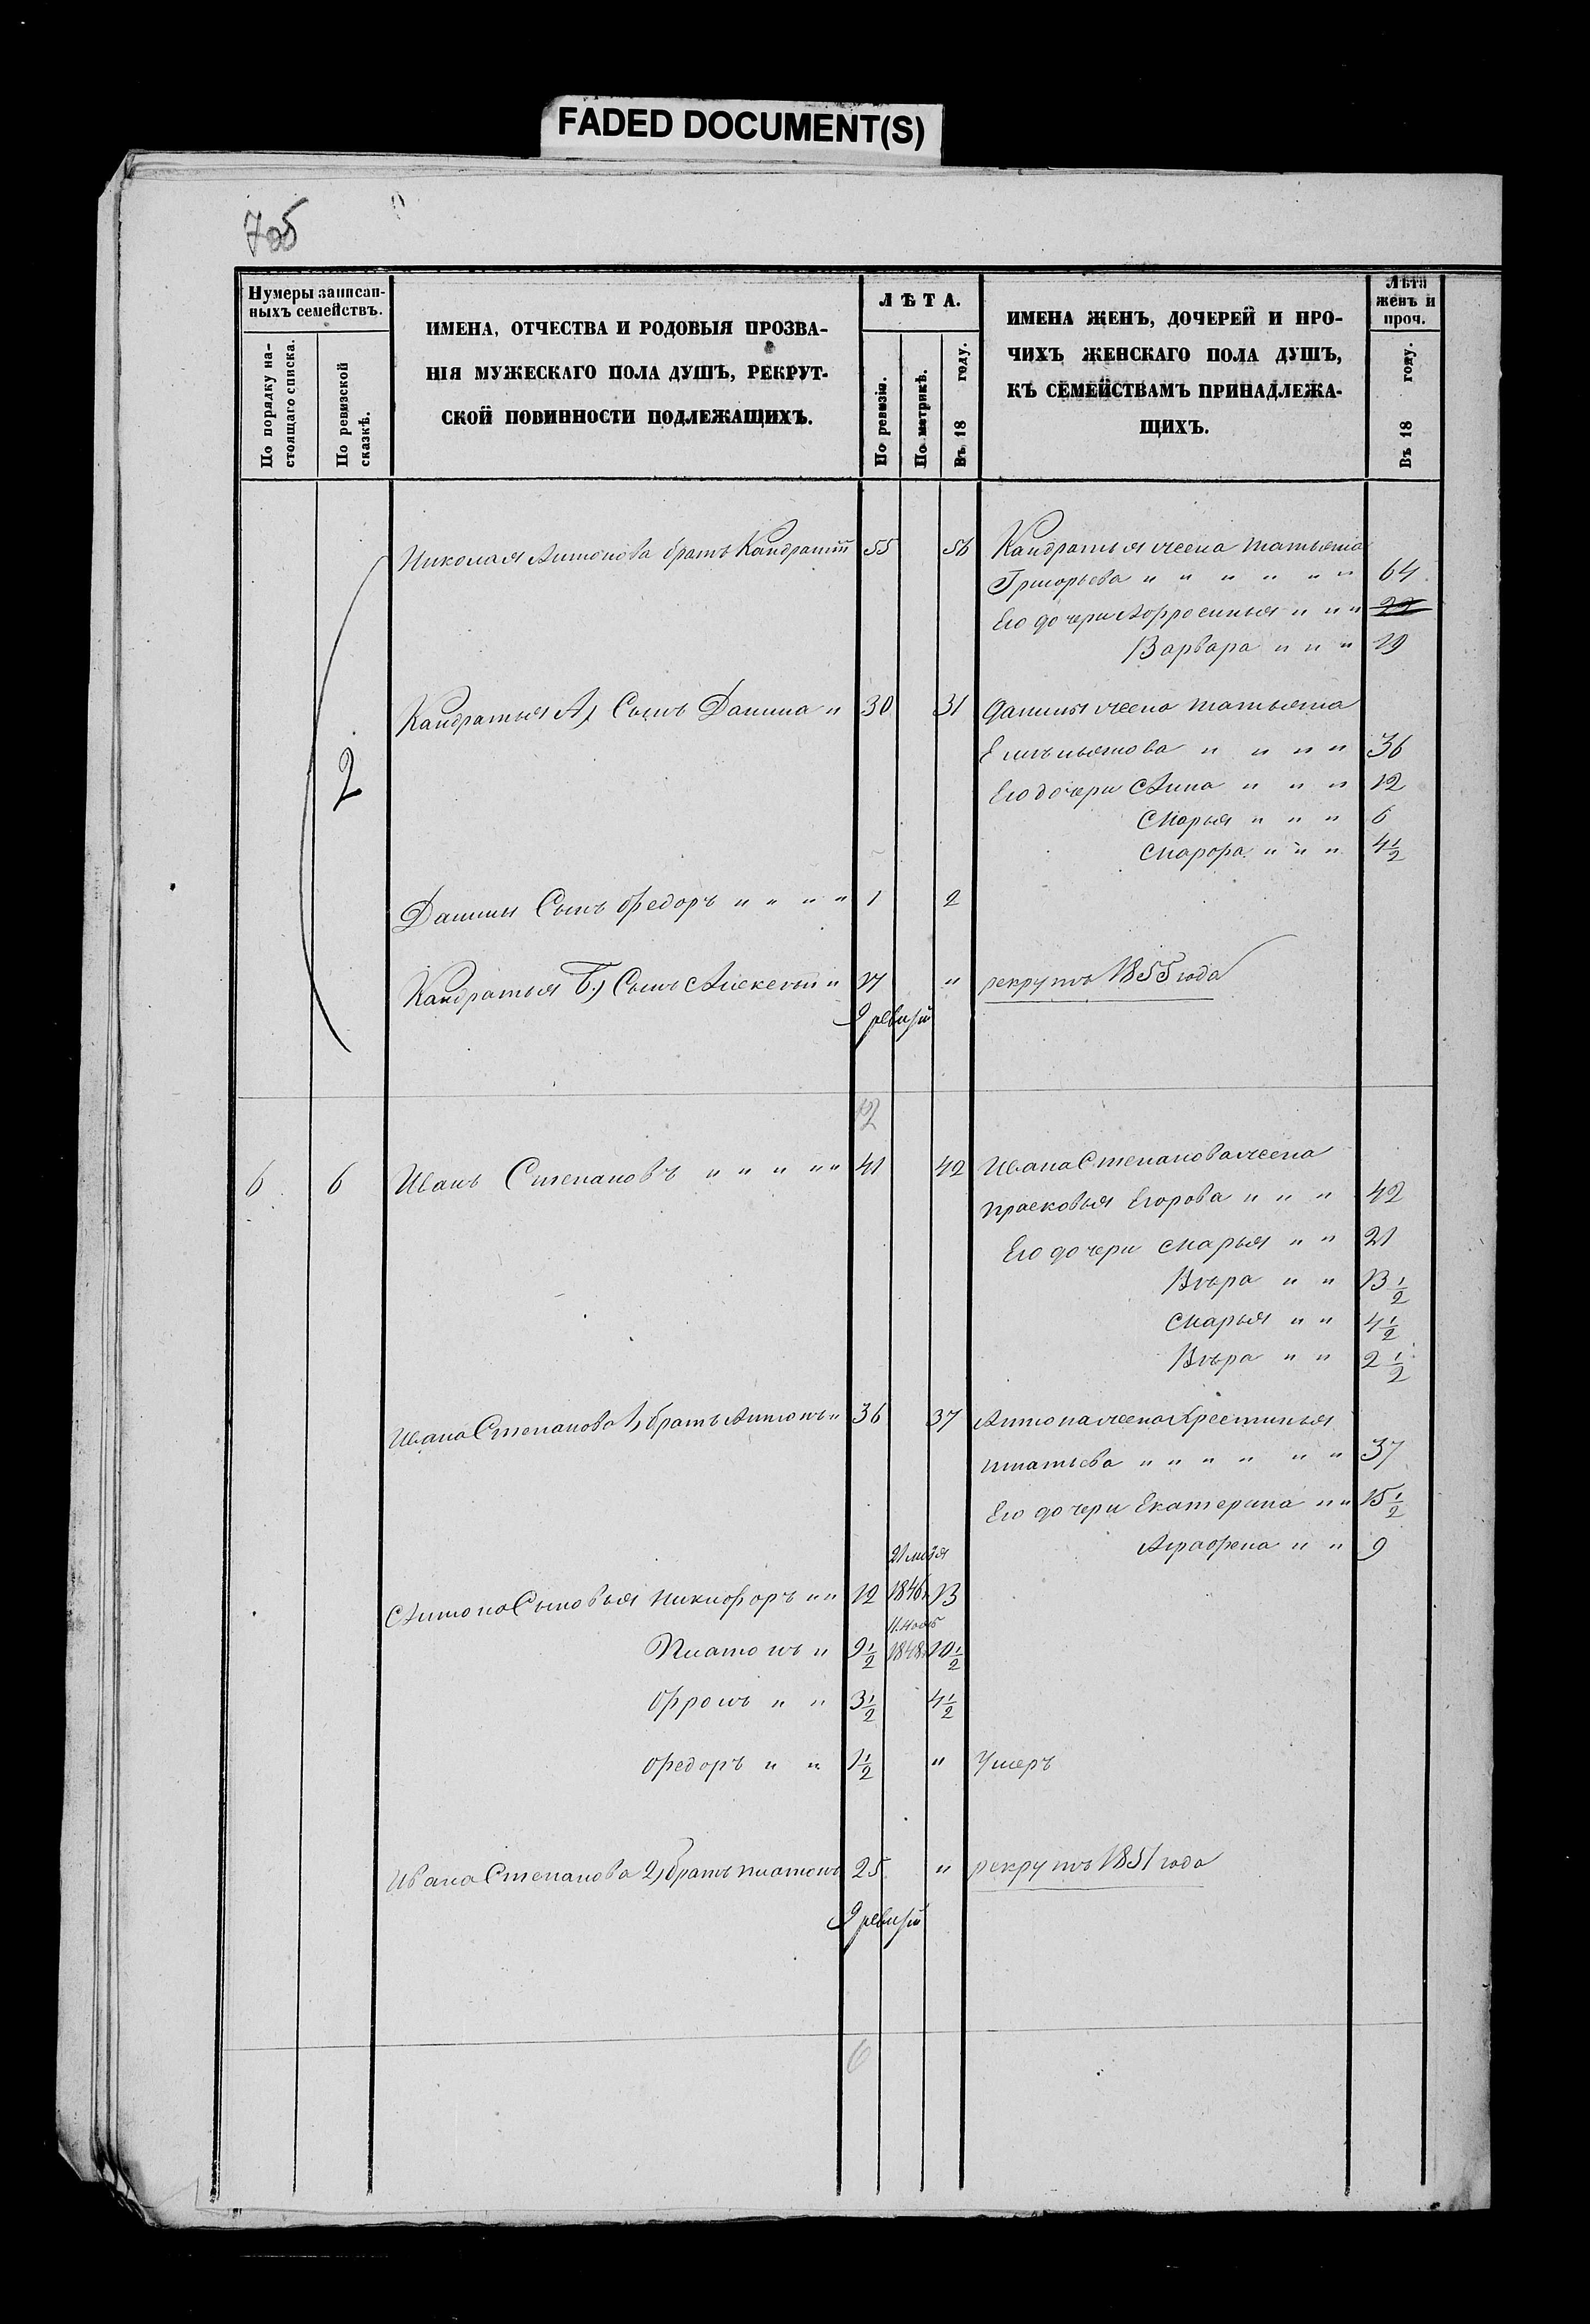 FADED DOCUMENT(S)
705
Нумеры записан-
ныхъ семействъ.
По порядку на-
стоящаго списка.
По ревизской
сказкѣ.
ИМЕНА, ОТЧЕСТВА И РОДОВЫЯ ПРОЗВА-
НІЯ МУЖЕСКАГО ПОЛА ДУШЪ, РЕКРУТ-
СКОЙ ПОВИННОСТИ ПОДЛЕЖАЩИХЪ.
ЛѢТА.
По ревизіи.
По метрикѣ.
Въ 18 году.
ИМЕНА ЖЕНЪ, ДОЧЕРЕЙ И ПРО-
ЧИХЪ ЖЕНСКАГО ПОЛА ДУШЪ,
КЪ СЕМЕЙСТВАМЪ ПРИНАДЛЕЖА-
ЩИХЪ.
Лѣта
женъ и
проч.
Въ 18 году.
Николая Антонова братъ Кондратій 55 56 Кондратья жена Татьяна
Григорьева " " " " " " 64
Его дочери Афросинья " " " 22
Варвара " " " 19
2
Кондратья А, Сынъ Данила " 30 31 Данилы жена Татьяна
Емельянова " " " " 36
Его дочери Анна " " " 12
Марья " " " 6
Марфа " " " 4 1/2
Данилы Сынъ Федоръ " " " " 1 2
Кондратья Б,) Сынъ Алексѣй " 17 " рекрутъ 1855 года
9 ревизіи
12
6 6 Иванъ Степановъ " " " " " 41 42 Ивана Степанова жена
Прасковья Егорова " " " 42
Его дочери Марья " " 21
Вѣра " " 13 1/2
Марья " " 4 1/2
Вѣра " " 2 1/2
Ивана Степанова 1, братъ Антонъ " 36 37 Антона жена Хрестинья
Игнатьева " " " " " " 37
Его дочери Екатерина " " 15 1/2
Аграфена " " 9
Антона Сыновья Никифоръ " " 12 1846 13
Платонъ " 9 1/2 1848 10 1/2
Фролъ " " 3 1/2 4 1/2
Федоръ " " 1 1/2 " Умеръ
Ивана Степанова 2, братъ Платонъ 25 " рекрутъ 1851 года
9 ревизіи
6